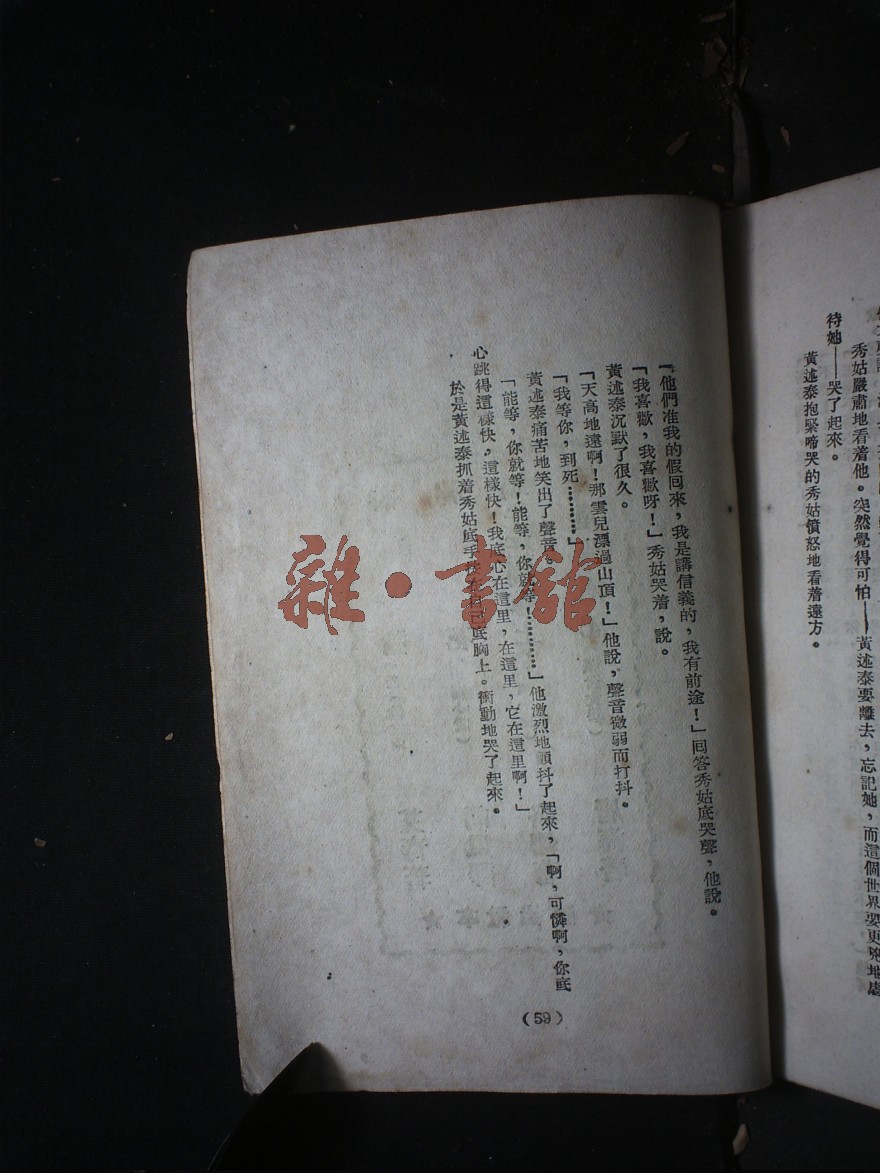 秀姑嚴肅地看着他。突然覺得可怕——黃述泰要離去，忘記她，而這個世界要更兇地虐
待她——哭了起來。
黃述泰抱緊啼哭的秀姑憤怒地看着遠方。
「他們准我的假回來，我是講信義的，我有前途！」回答秀姑底哭聲，他說。
「我喜歡，我喜歡呀！」秀姑哭着，說。
黃述泰沉默了很久。
「天高地遠啊！那雲兒漂過山頂！」他說，聲音微弱而打抖。
「我等你，到死…………」
黃述泰痛苦地笑出了聲音。
「能等，你就等！能等，你就等！…………」他激烈地顫抖了起來，「啊，可憐啊，你底
心跳得這樣快，這樣快！我底心在這里，在這里，它在這里啊！」
於是黃述泰抓着秀姑底手底胸上。衝動地哭了起來。
(59)
雜·書館